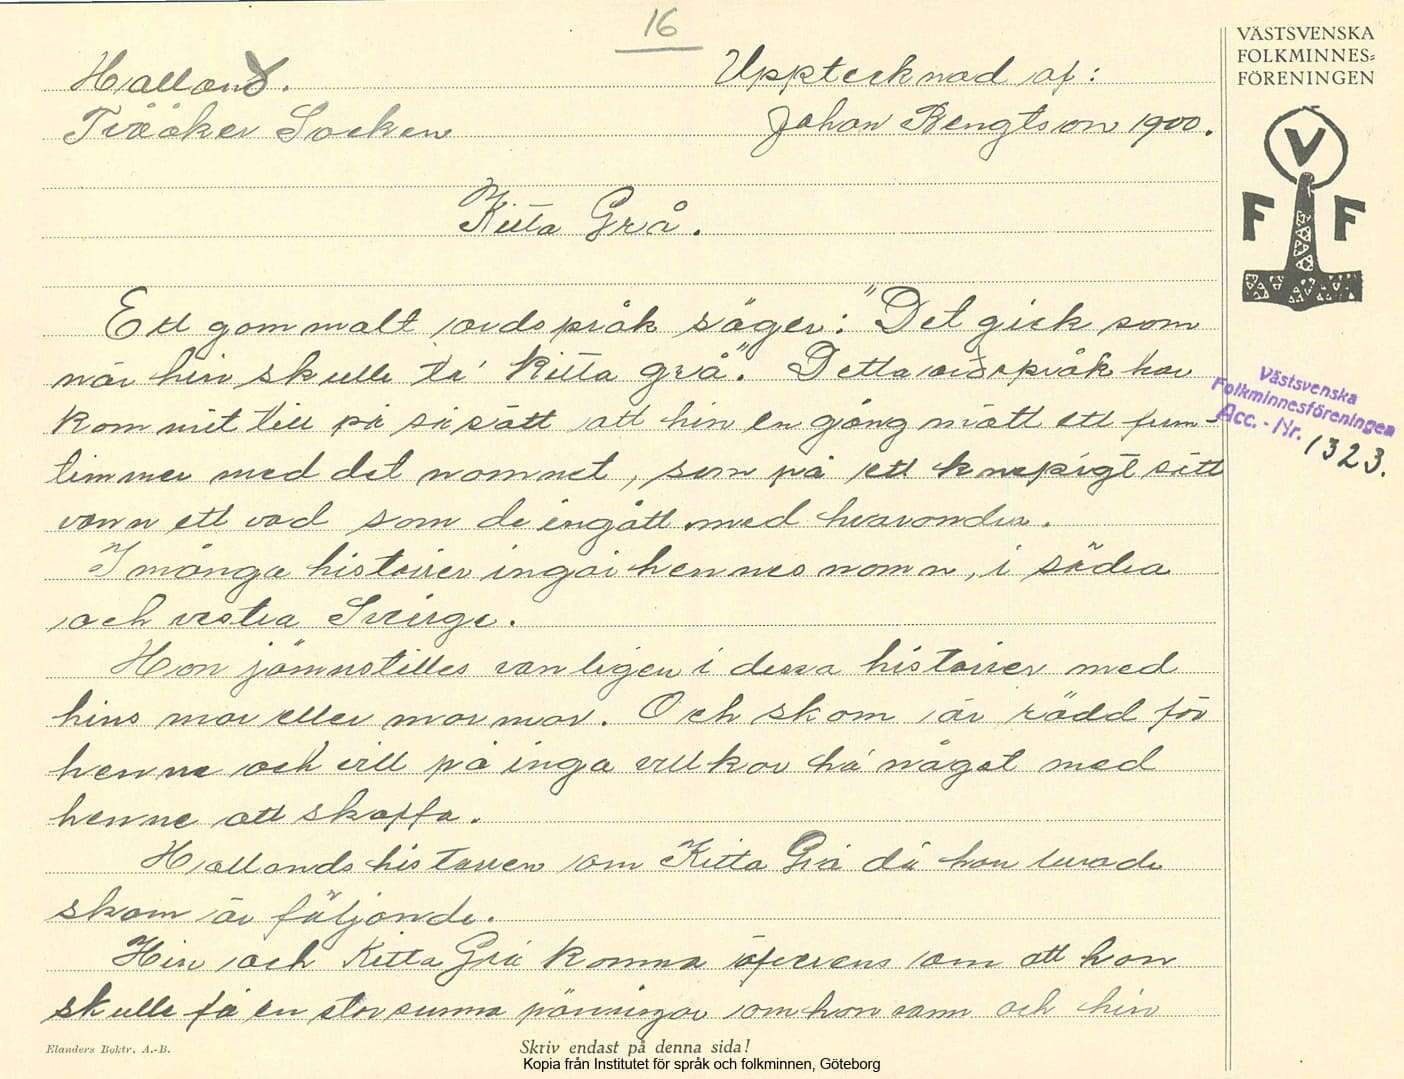 16
Halland.
Uppteknad af:
Tvååker Socken
Johan Bengtson 1900.
Kitta Grå.
Ett gammalt ordspråk säger: "Det gick som
når hin skulle ta' Kitta grå". Detta ordspråk har
kommit till på så sätt att hin en gång mött ett frun-
timmer med det namnet, som på ett knepigt sätt
vann ett vad som de ingått med hvarandra.
I många historier ingår hennes namn, i södra
och vestra Sverige.
Hon jämnstilles vanligen i dessa historier med
hins mor eller mormor. Och skam är rädd för
henne och vill på inga villkor ha' något med
henne att skaffa.
Hallandshistorien om Kitta Grå då hon lurade
skam är följande.
Hin och Kitta Grå komma öfverens om att hon
skulle få en stor summa pänningar om hon vann och hin
VÄSTSVENSKA
FOLKMINNES-
FÖRENINGEN
V
F F
Västsvenska
Folkminnesföreningen
Acc. - Nr. 1323.
Elanders Boktr. A.-B.
Skriv endast på denna sida!
Kopia från Institutet för språk och folkminnen, Göteborg